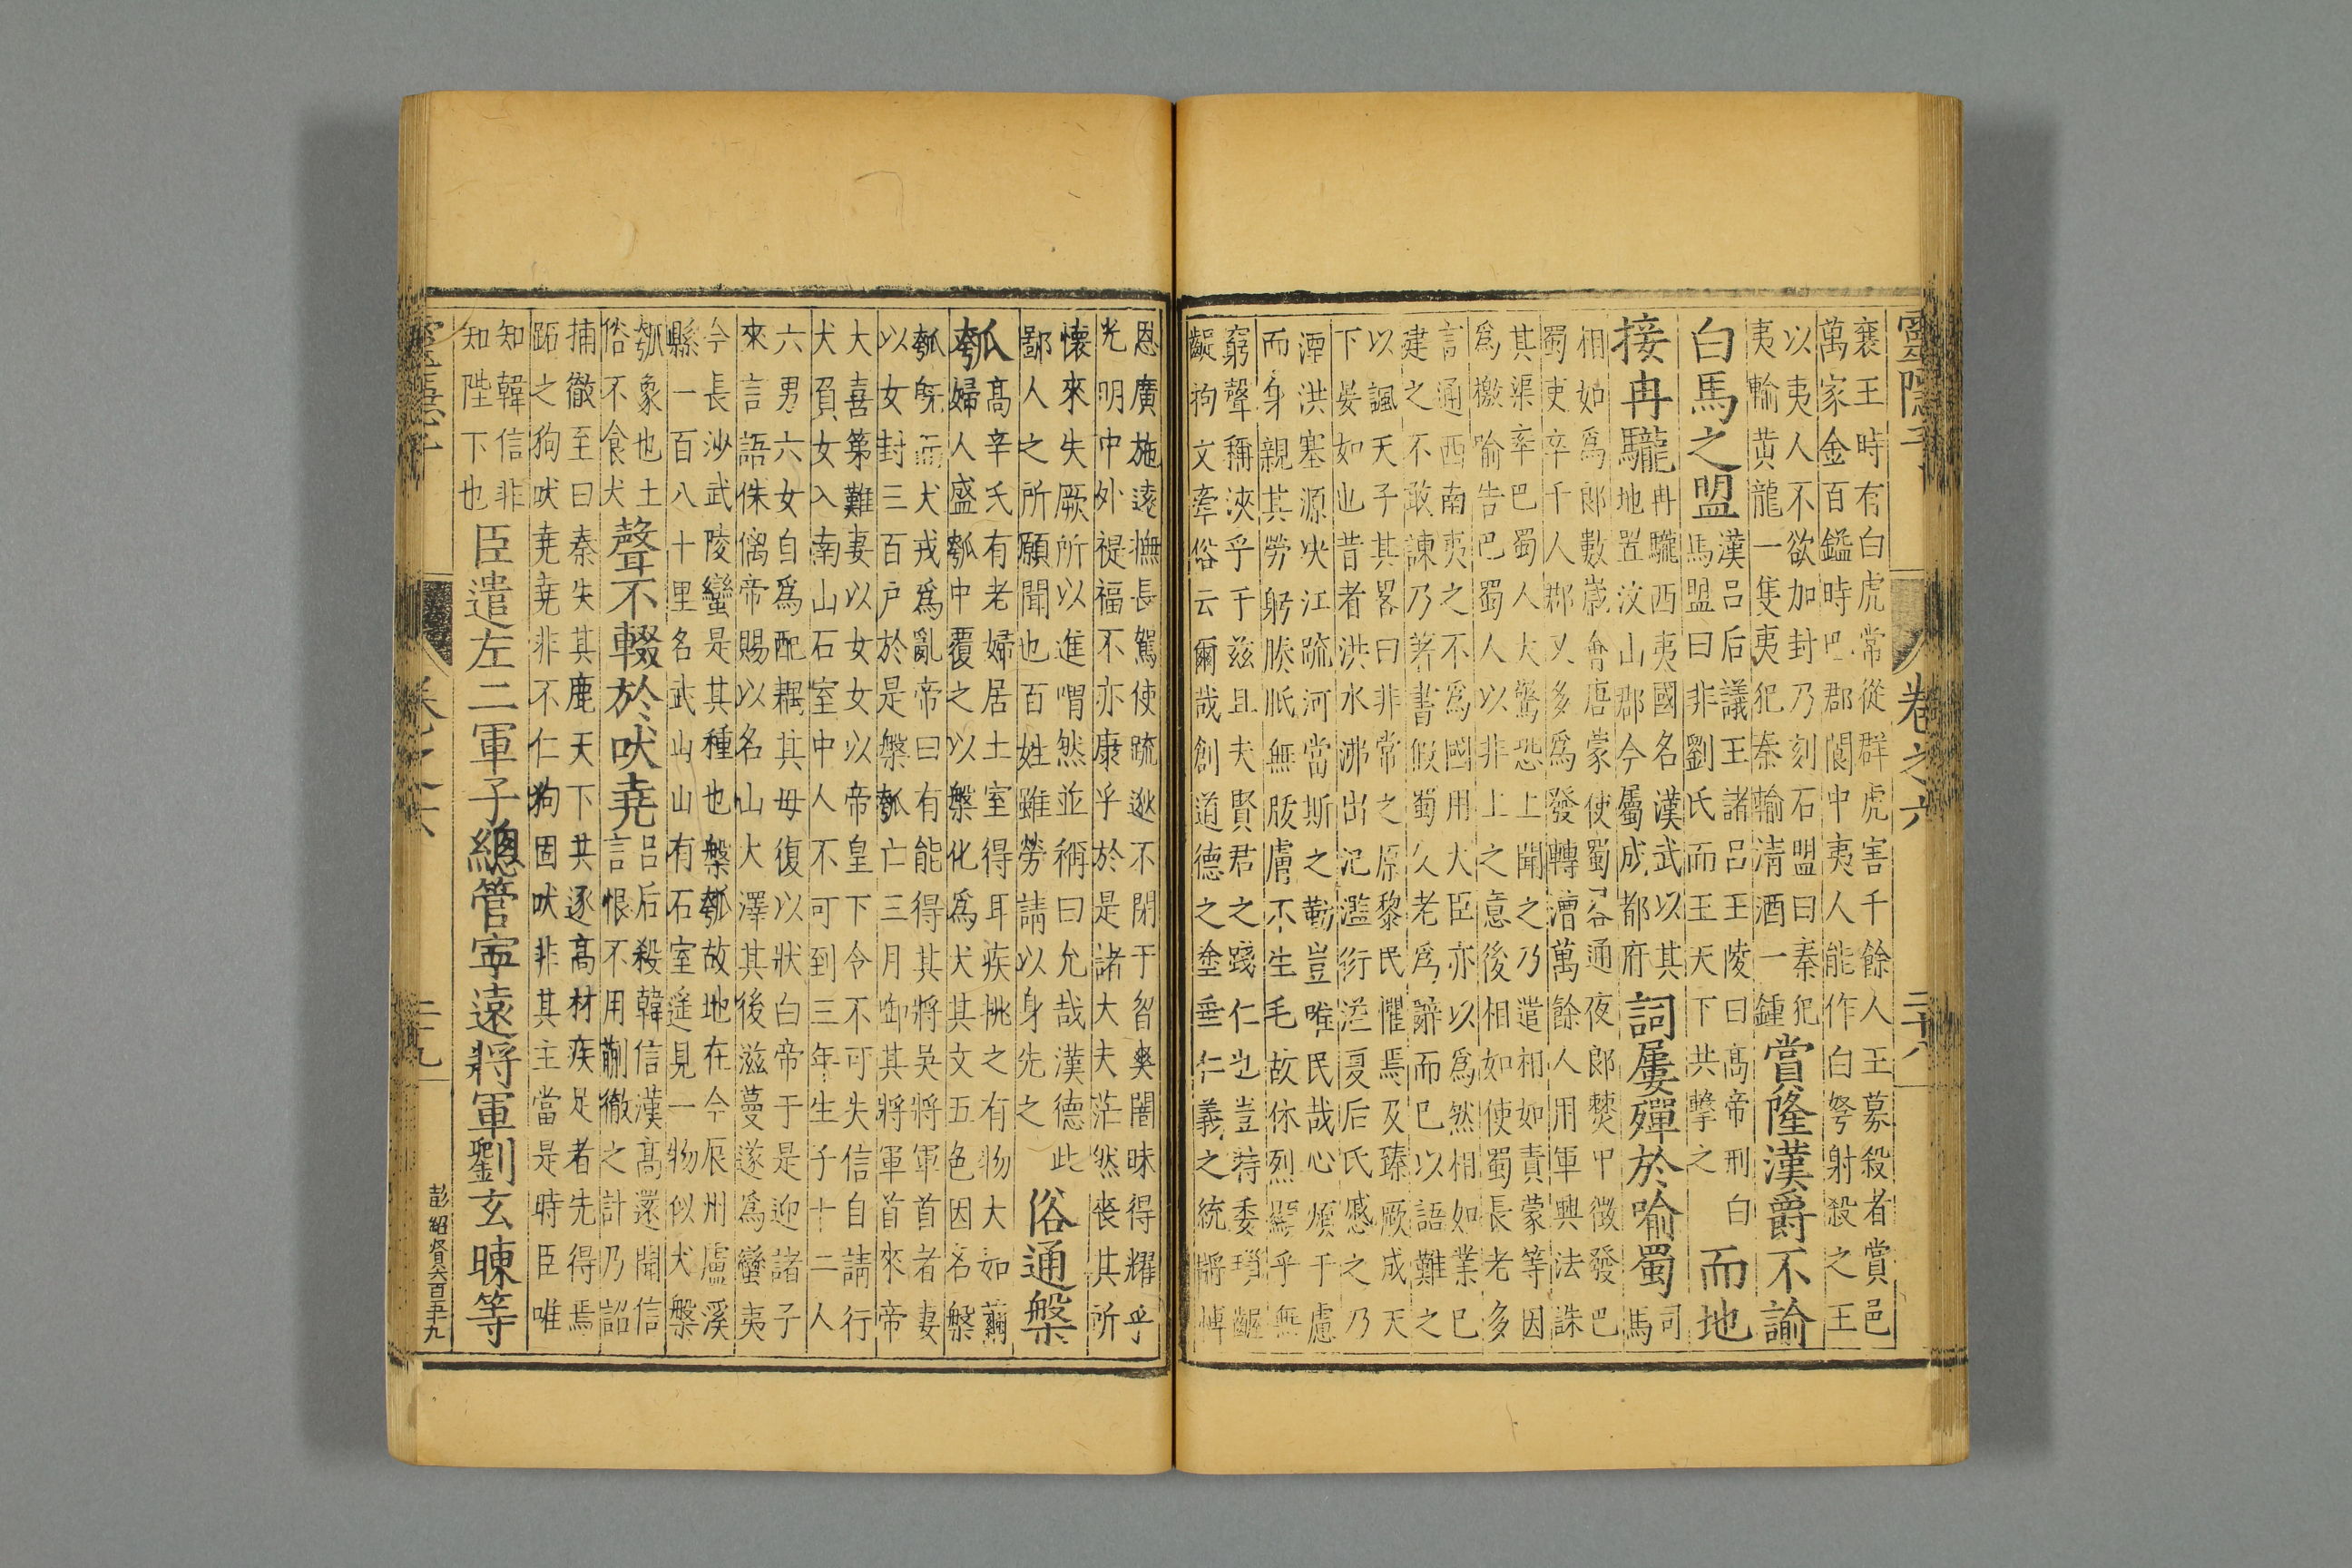 靈隱子 卷之六 二十八
襄王時有白虎常從群虎害千餘人王募殺者賞邑
萬家金百鎰時巴郡閬中夷人能作白弩射殺之王
以夷人不欲加封乃刻石盟曰秦犯
夷輸黄龍一隻夷犯秦輸清酒一鍾
賞隆漢爵不諭
白馬之盟
漢呂后議王諸呂王陵曰髙帝刑白
馬盟曰非劉氏而王天下共擊之
而地
接冉駹
冉駹西夷國名漢武以其
地置汶山郡今屬成都府
詞屢殫於喻蜀
司
馬
相如爲郎數歲會唐蒙使蜀通夜郎僰中徵發巴
蜀吏卒千人郡又多爲發轉漕萬餘人用軍興法誅
其渠率巴蜀人大驚恐上聞之乃遣相如責蒙等因
爲檄喻告巴蜀人以非上之意後相如使蜀長老多
言通西南夷之不爲國用大臣亦以爲然相如業已
建之不敢諫乃著書假蜀父老爲辭而已以語難之
以諷天子其畧曰非常之原黎民懼焉及臻厥成天
下晏如也昔者洪水沸出氾濫衍溢夏后氏慼之乃
湮洪塞源决江疏河當斯之勤豈唯民哉心煩于慮
而身親其勞躬腠胝無胈膚不生毛故休烈顯乎無
窮聲稱浹乎于兹且夫賢君之踐仁也豈特委瑣齷
齪拘文牽俗云爾哉創道德之塗垂仁義之統將博
恩廣施逺撫長駕使疏逖不閉于智爽闇昧得耀乎
光明中外禔福不亦康乎於是諸大夫茫然喪其所
懷來失厥所以進喟然並稱曰允哉漢德此
鄙人之所願聞也百姓雖勞請以身先之
俗通槃
瓠
髙辛氏有老婦居土室得耳疾挑之有物大如繭
婦人盛瓠中覆之以槃化爲犬其文五色因名槃
瓠旣而犬戎爲亂帝曰有能得其將吳將軍首者妻
以女封三百户於是槃瓠亡三月啣其將軍首來帝
大喜第難妻以女女以帝皇下令不可失信自請行
犬負女入南山石室中人不可到三年生子十二人
六男六女自爲配耦其母復以狀白帝于是迎諸子
來言語侏㒧帝賜以名山大澤其後滋蔓遂爲蠻夷
今長沙武陵蠻是其種也槃瓠故地在今辰州盧溪
縣一百八十里名武山山有石室遥見一物似犬槃
瓠象也土
俗不食犬
聲不輟於吠尭
呂后殺韓信漢髙還聞信
言恨不用蒯徹之計乃詔
捕徹至曰秦失其鹿天下共逐髙材疾足者先得焉
跖之狗吠尭尭非不仁狗固吠非其主當是時臣唯
知韓信非
知陛下也
臣遣左二軍子總管寧遠將軍劉玄暕等
卷之六 二十九
彭紹賢六百五十九